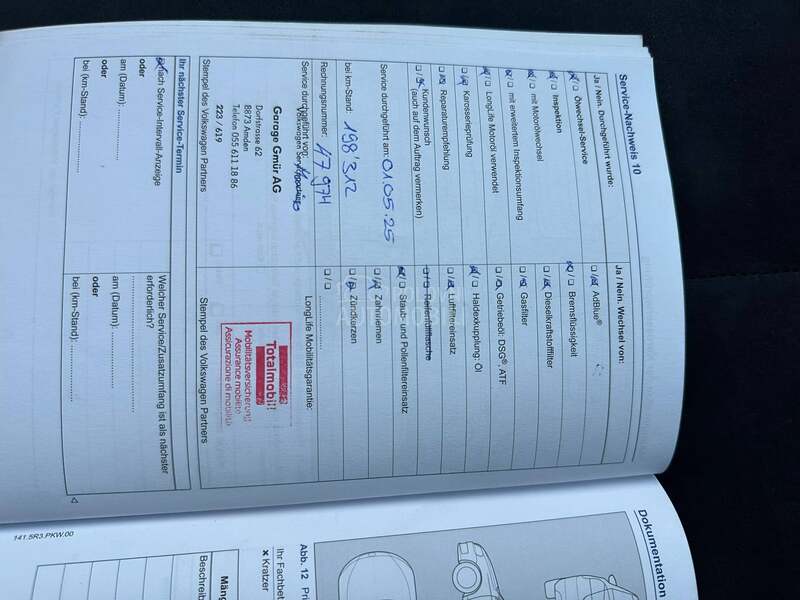 Service-Nachweis 10
Ja / Nein. Durchgeführt wurde:
Ölwechsel-Service
Inspektion
mit Motorölwechsel
mit erweitertem Inspektionsumfang
LongLife Motoröl verwendet
Karosserieprüfung
Reparaturempfehlung
Kundenwunsch
(auch auf dem Auftrag vermerken)
Service durchgeführt am: 01.05.25
bei km-Stand: 198'312
Rechnungsnummer: 47974
Service durchgeführt von:
Garage Gmür AG
Dorfstrasse 62
8873 Amden
Telefon 055 611 18 86
223 / 619
Stempel des Volkswagen Partners
Ja / Nein. Wechsel von:
AdBlue®
Bremsflüssigkeit
Dieselkraftstofffilter
Gasfilter
Getriebeöl: DSG®, ATF
Haldexkupplung: Öl
Luftfiltereinsatz
Reifenfüllflasche
Staub- und Pollenfiltereinsatz
Zahnriemen
Zündkerzen
LongLife Mobilitätsgarantie:
Totalmobil!
Mobilitätsversicherung
Assurance mobilité
Assicurazione di mobilità
Stempel des Volkswagen Partners
Ihr nächster Service-Termin
nach Service-Intervall-Anzeige
oder
am (Datum):
oder
bei (km-Stand):
Welcher Service/Zusatzumfang ist als nächster
erforderlich?
am (Datum):
oder
bei (km-Stand):
141.5R3.PKW.00
Dokumentation
Abb. 12
Ihr Fachbet
× Kratzer
Mäng
Beschreib